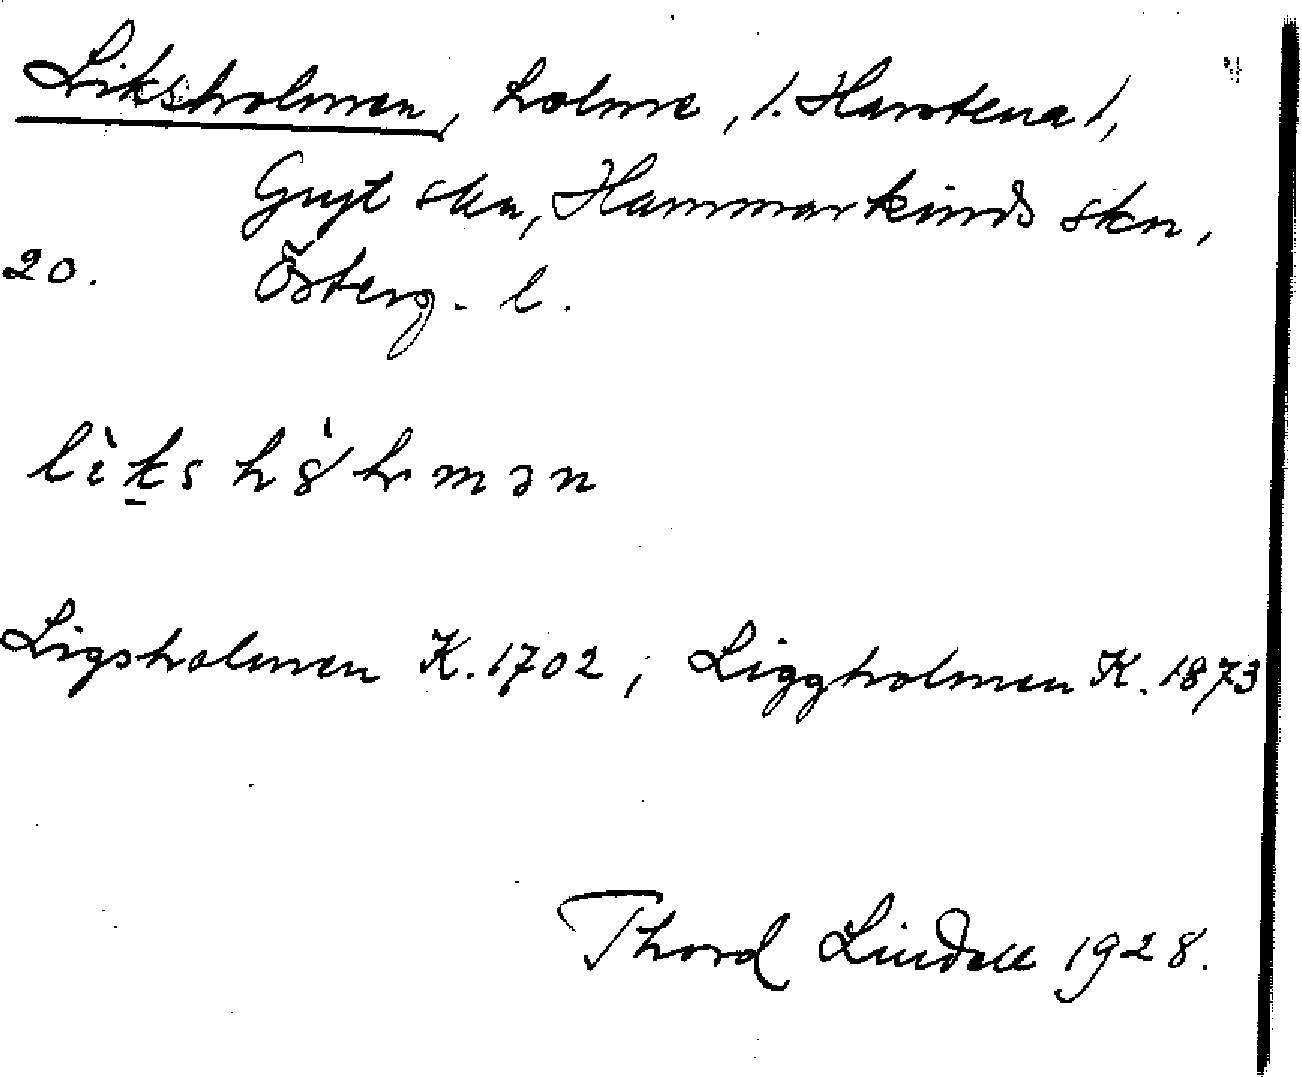 Liksholmen, holme, /. Harstena /,
Gryt skn, Hammarkinds skn,
20. Österg. l.
Ligsholmen K. 1702; Liggholmen K. 1873
Thord Lindell 1928.